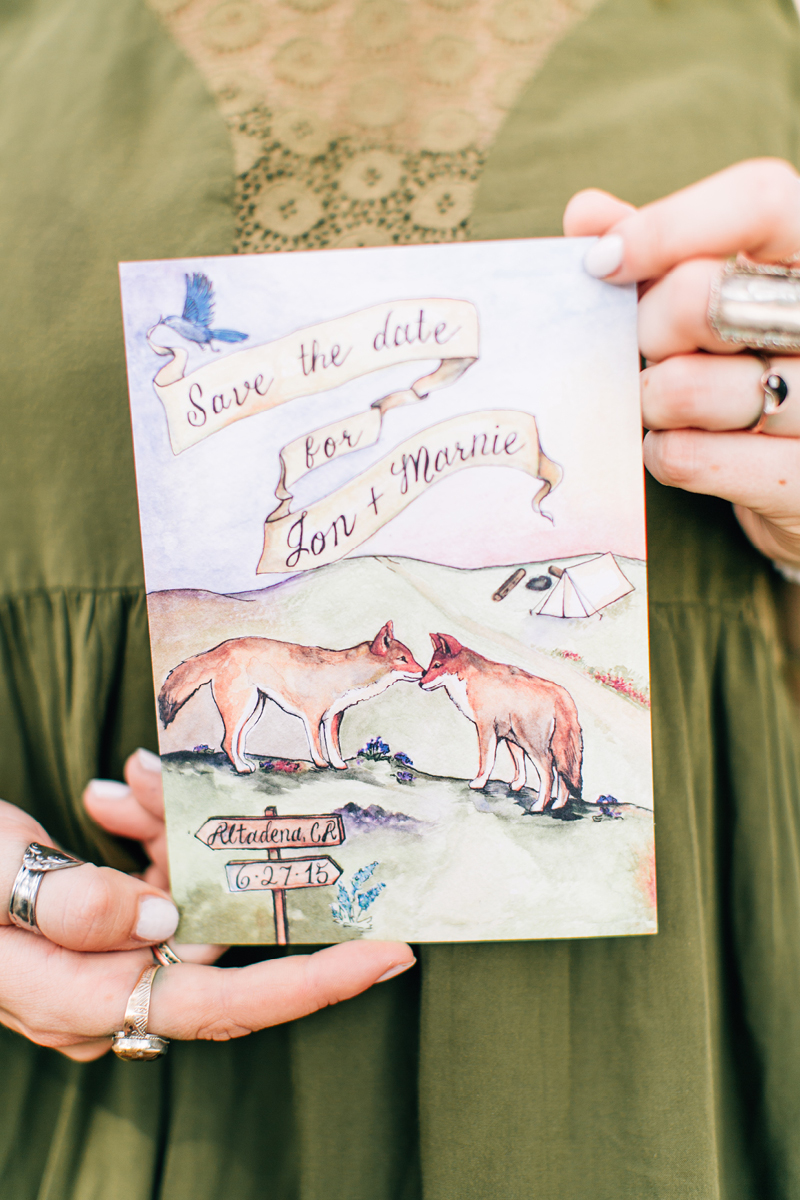 Save the date
for
Jon + Marnie
Altadena, CA
6·27·15